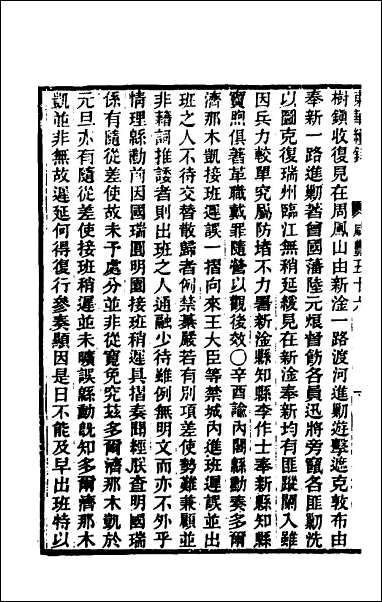 東華續錄 咸豐五十六
樹鎮收復見在周鳳山由新淦一路渡河進勦遊擊遮克敦布由
奉新一路進勦著曾國藩陸元烺督飭各員迅將旁竄各匪勦洗
以圖克復瑞州臨江無稍延緩見在新淦奉新均有匪蹤闌入雖
因兵力較單究屬防堵不力署新淦縣知縣李作士奉新縣知縣
寶煦俱著革職戴罪隨營以觀後效○辛酉諭內閣縣勳奏多爾
濟那木凱接班遲誤一摺向來王大臣等禁城內進班遲誤並出
班之人不待交替散歸者例禁綦嚴若有別項差使勢難兼顧並
非藉詞推諉者則出班之人通融少待雖例無明文而亦不外乎
情理縣勳前因國瑞圓明園接班稍遲具摺奏聞經朕查明國瑞
係有隨從差使故未予處分並非從寬免究茲多爾濟那木凱於
元旦亦有隨從差使接班稍遲並未曠誤縣勳旣知多爾濟那木
凱並非無故遲延何得復行參奏顯因是日不能及早出班特以